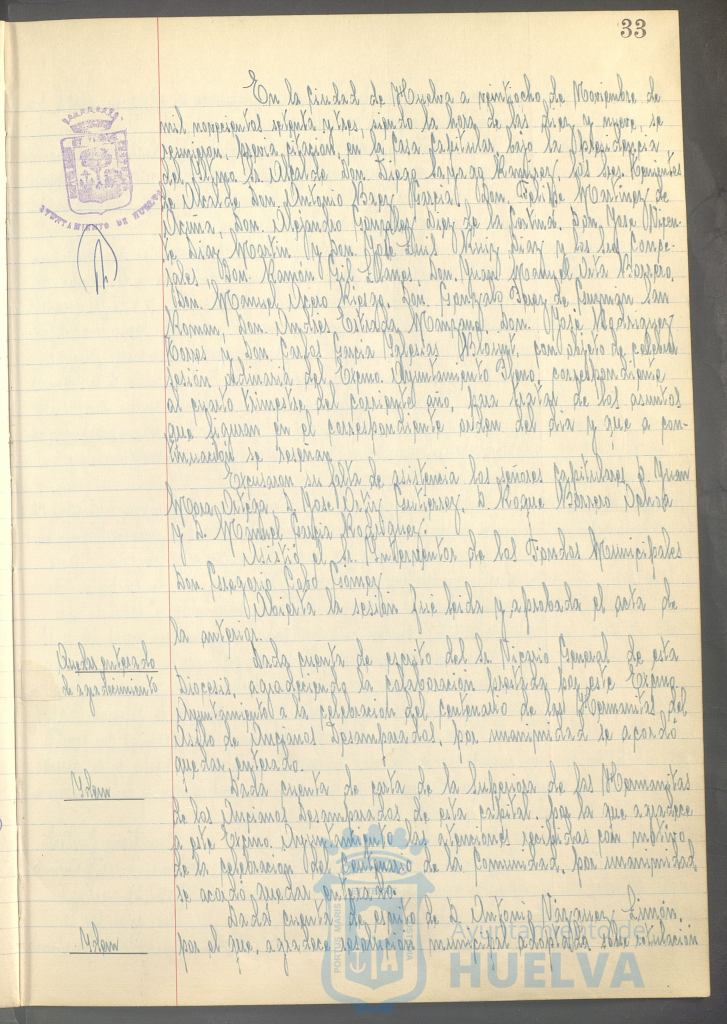 33
En la Ciudad de Huelva a veintiocho de Noviembre de
mil novecientos setenta y tres, siendo la hora de las diez y nueve, se
reunieron, previa citación, en la Casa Capitular, bajo la Presidencia
del Iltmo Sr. Alcalde Don Diego Sayago Ramírez los Sres. Tenientes
de Alcalde Don Antonio Baez García, Don Felipe Martínez de
Acuña, Don Alejandro González Diez de la Cortina, Don José Vicen-
te Diaz Martín y Don José Luis Ruiz Diaz y los Sres Conce-
jales, Don Ramón Gil Llanes, Don Juan Manuel Orta Borrero,
Don Manuel Acero Riesgo, Don Gonzalo Perez de Guzmán San
Roman, Don Andrés Estrada Manzano, Don José Rodriguez
Torres y Don Carlos García Iglesias, con objeto de celebrar
sesión ordinaria del Excmo. Ayuntamiento Pleno, correspondiente
al cuarto trimestre del corriente año, para tratar de los asuntos
que figuran en el correspondiente orden del día y que a con-
tinuación se reseñan.
Excusaron su falta de asistencia los señores Capitulares D. Juan
Mora Ortega, D. José Ortiz Gutierrez, D. Roque Borrero
y D. Manuel García Rodríguez.
Asistió el Sr. Interventor de los Fondos Municipales
Don Gregorio Cabo Gómez
Abierta la sesión fué leida y aprobada el acta de
la anterior.
Quedar enterado
de agradecimiento
Dada cuenta de escrito del Sr. Vicario General de esta
Diócesis, agradeciendo la colaboración prestada por este Excmo.
Ayuntamiento a la celebración del centenario de las Hermanitas del
Asilo de Ancianos Desamparados, por unanimidad se acordó
quedar enterado.
Idem
Dada cuenta de carta de la Superiora de las Hermanitas
de los Ancianos Desamparados de esta capital, por la que agradece
a este Excmo. Ayuntamiento las atenciones recibidas con motivo
de la celebración del Centenario de la Comunidad, por unanimidad
se acordó quedar enterado.
Idem
Dada cuenta de escrito de D. Antonio Vázquez Limón,
por el que, agradece resolución municipal adoptada sobre rotulación
AYUNTAMIENTO DE HUELVA
Ayuntamiento de
HUELVA